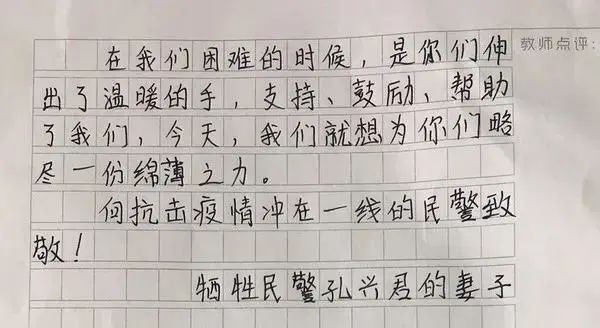 教师点评:
在我们困难的时候,是你们伸
出了温暖的手,支持、鼓励、帮助
了我们,今天,我们就想为你们略
尽一份绵薄之力。
向抗击疫情冲在一线的民警致
敬!
牺牲民警孔兴君的妻子